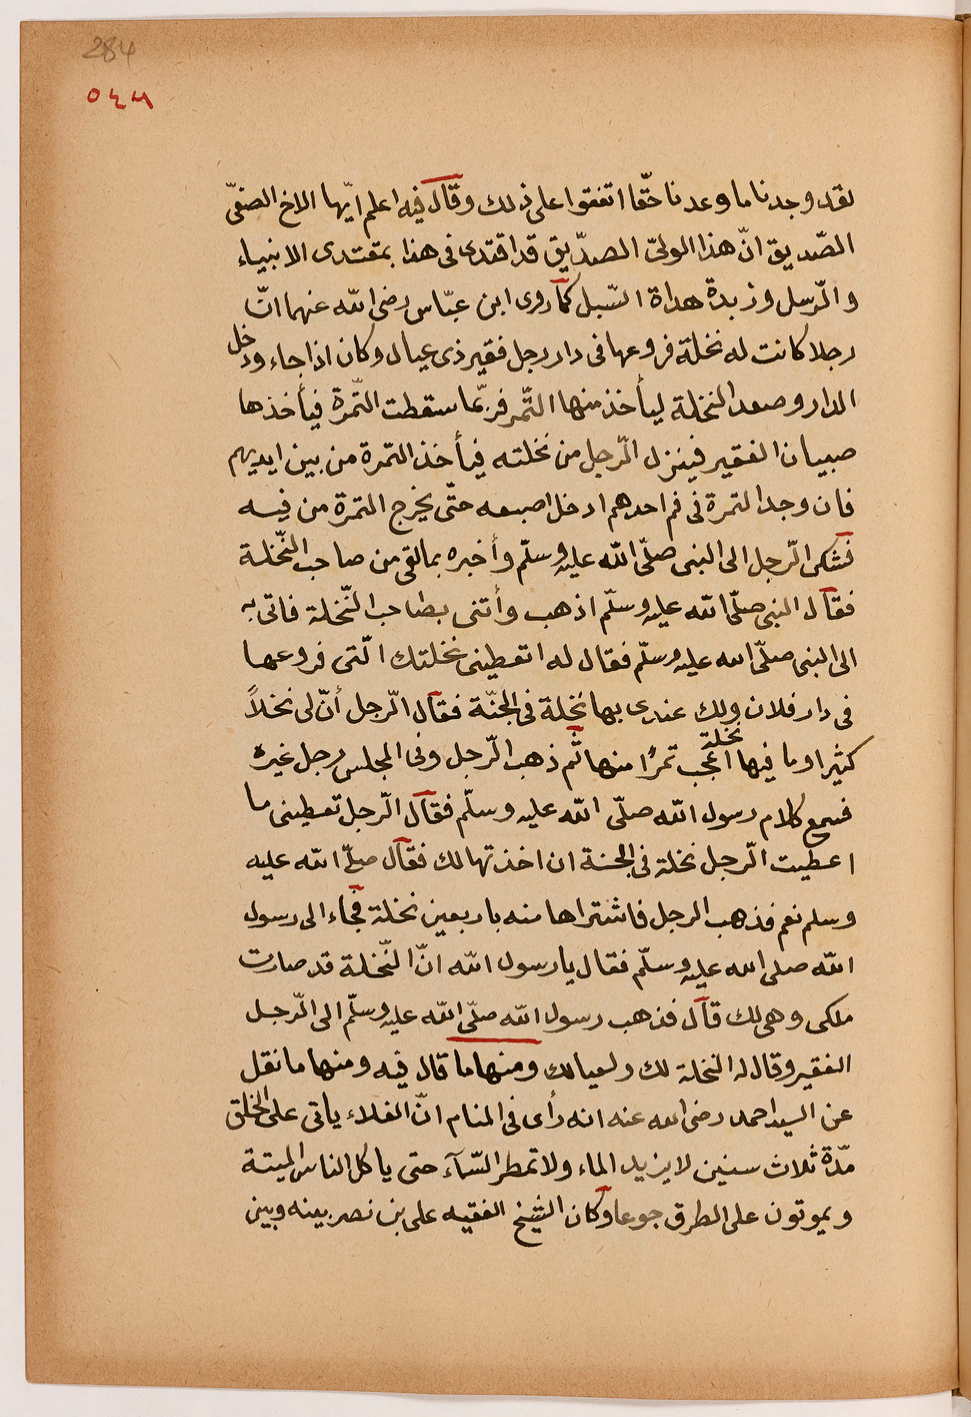 284
٥٤٧
لقد وجدنا ما وعدنا حقّا اتفقوا على ذلك وقال فيه اعلم ايّها الاخ الصفىّ
الصّديق انّ هذا الولىّ الصدّيق قد اقتدى فى هذا بمقتدى الانبياء
والرّسل وزبدة هداة السّبل كما روى ابن عبّاس رضى الله عنهما انّ
رجلا كانت له نخلة فروعها فى دار رجل فقير ذى عيال وكان اذا جاء ودخل
الدار وصعد النخلة ليأخذ منها التّمر فربّما سقطت التّمرة فيأخذها
صبيان الفقير فينزل الرّجل من نخلته فيأخذ التمرة من بين ايديهم
فان وجد التمرة فى فم احدهم ادخل اصبعه حتّى يخرج التمرة من فيه
فشكى الرّجل الى النبى صلّى الله عليه وسلّم وأخبره بما لقى من صاحب النّخلة
فقال النبى صلّى الله عليه وسلّم اذهب وأتنى بصاحب النّخلة فاتى به
الى النبى صلّى الله عليه وسلّم فقال له اتعطينى نخلتك الّتى فروعها
فى دار فلان ولك عندى بها نخلة فى الجنّة فقال الرّجل أنّ لى نخلاً
كثيرا وما فيها نخلة اعجب تمرًا منها ثم ذهب الرّجل وفى المجلس رجل غيره
فسمع كلام رسول الله صلّى الله عليه وسلّم فقال الرّجل تعطينى ما
اعطيت الرّجل نخلة فى الجنة ان اخذتها لك فقال صلّى الله عليه
وسلم نعم فذهب الرجل فاشتراها منه باربعين نخلة فجاء الى رسول
الله صلى الله عليه وسلّم فقال يا رسول الله انّ النّخلة قد صارت
ملكى وهى لك قال فذهب رسول الله صلّى الله عليه وسلّم الى الرّجل
الفقير وقال له النخلة لك ولعيالك ومنها ما قال فيه ومنها ما نقل
عن السيد احمد رضى الله عنه انه رأى فى المنام انّ الغلاء ياتى على الخلق
مدّة ثلاث سنين لا يزيد الماء ولا تمطر السّمآء حتى ياكل الناس الميتة
ويموتون على الطرق جوعا وكان الشيخ الفقيه على بن نصر بينه وبين